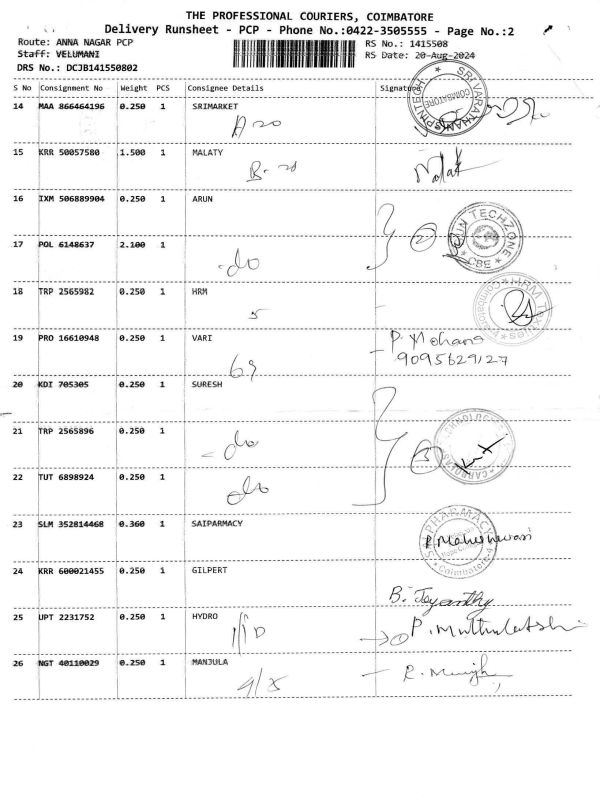 THE PROFESSIONAL COURIERS, COIMBATORE
Delivery Runsheet - PCP - Phone No.:0422-3505555 - Page No.:2
Route: ANNA NAGAR PCP RS No.: 1415508
Staff: VELUMANI RS Date: 20-Aug-2024
DRS No.: DCJB141550802
S No Consignment No Weight PCS Consignee Details Signature
14 MAA 866464196 0.250 1 SRIMARKET
SRI VARATHAN SPINTECH COIMBATORE
15 KRR 50057580 1.500 1 MALATY
16 IXM 506889904 0.250 1 ARUN
TECHZONE CBE
17 POL 6148637 2.100 1
do
18 TRP 2565982 0.250 1 HRM
HRM Coimbatore
19 PRO 16610948 0.250 1 VARI
P. Mohana
9095629127
20 KDI 705305 0.250 1 SURESH
21 TRP 2565896 0.250 1
do
22 TUT 6898924 0.250 1
do
23 SLM 352814468 0.360 1 SAIPARMACY
PHARMACY Coimbatore
R. Maheshwari
24 KRR 600021455 0.250 1 GILPERT
B. Jayanthy
25 UPT 2231752 0.250 1 HYDRO
26 NGT 40110029 0.250 1 MANJULA